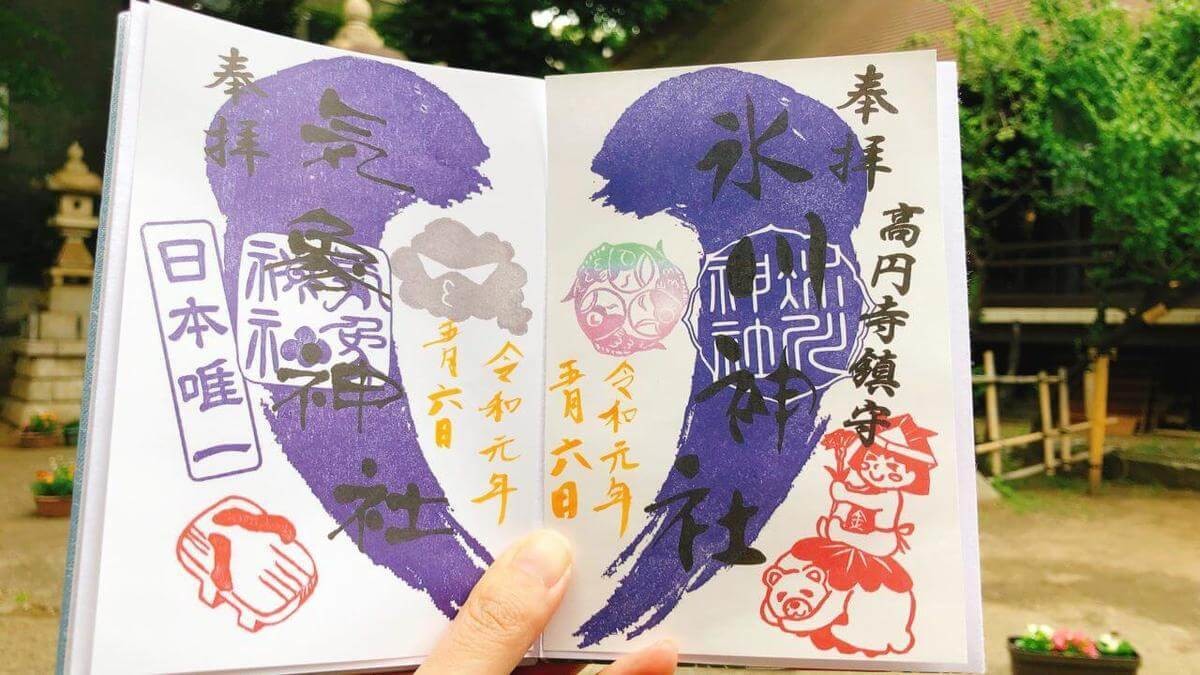 奉拝
高円寺鎮守
氷川神社
金
令和元年
五月六日
奉拝
気象神社
日本唯一
令和元年
五月六日